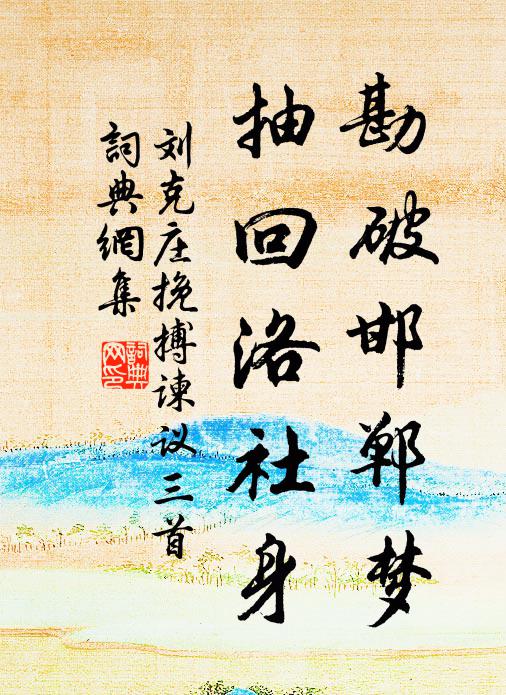 勘破邯郸梦
抽回洛社身
刘克庄挽搏谏议三首
詞典網集
詞典
网印